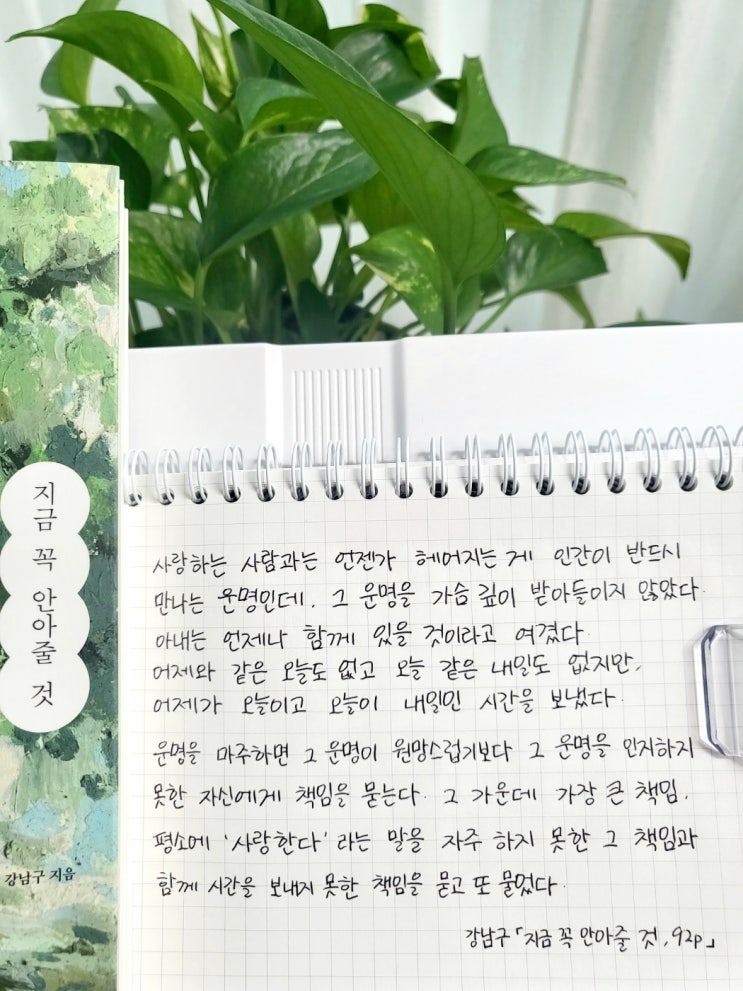 지금 꼭 안아줄 것
강남구 지음
사랑하는 사람과는 언젠가 헤어지는 게 인간이 반드시
만나는 운명인데, 그 운명을 가슴 깊이 받아들이지 않았다.
아내는 언제나 함께 있을 것이라고 여겼다.
어제와 같은 오늘도 없고 오늘 같은 내일도 없지만,
어제가 오늘이고 오늘이 내일인 시간을 보냈다.
운명을 마주하면 그 운명이 원망스럽기보다 그 운명을 인지하지
못한 자신에게 책임을 묻는다. 그 가운데 가장 큰 책임,
평소에 '사랑한다' 라는 말을 자주 하지 못한 그 책임과
함께 시간을 보내지 못한 책임을 묻고 또 물었다.
강남구 「지금 꼭 안아줄 것, 92p」